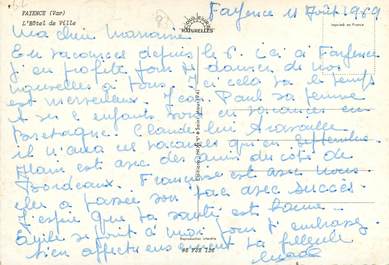 FAYENCE (Var)
L'Hôtel de Ville
NATURELLES
Imprimé en France
Fayence 11 Août 1969
Ma chère Marraine
En vacances depuis le 6 ici à Fayence
j'en profite pour te donner de nos
nouvelles à tous, ici cela va le temps
est merveilleux. Jean Paul sa femme
et enfants sont en vacances en
Bretagne. Claude lui travaille
il n'aura ses vacances qu'en septembre
Alain est avec des amis du côté de
Bordeaux. Françoise est avec nous
elle a passée son bac avec succès
J'espère que ta santé est bonne
se joint à moi pour t'embrasser
bien affectueusement ta filleule
Reproduction interdite